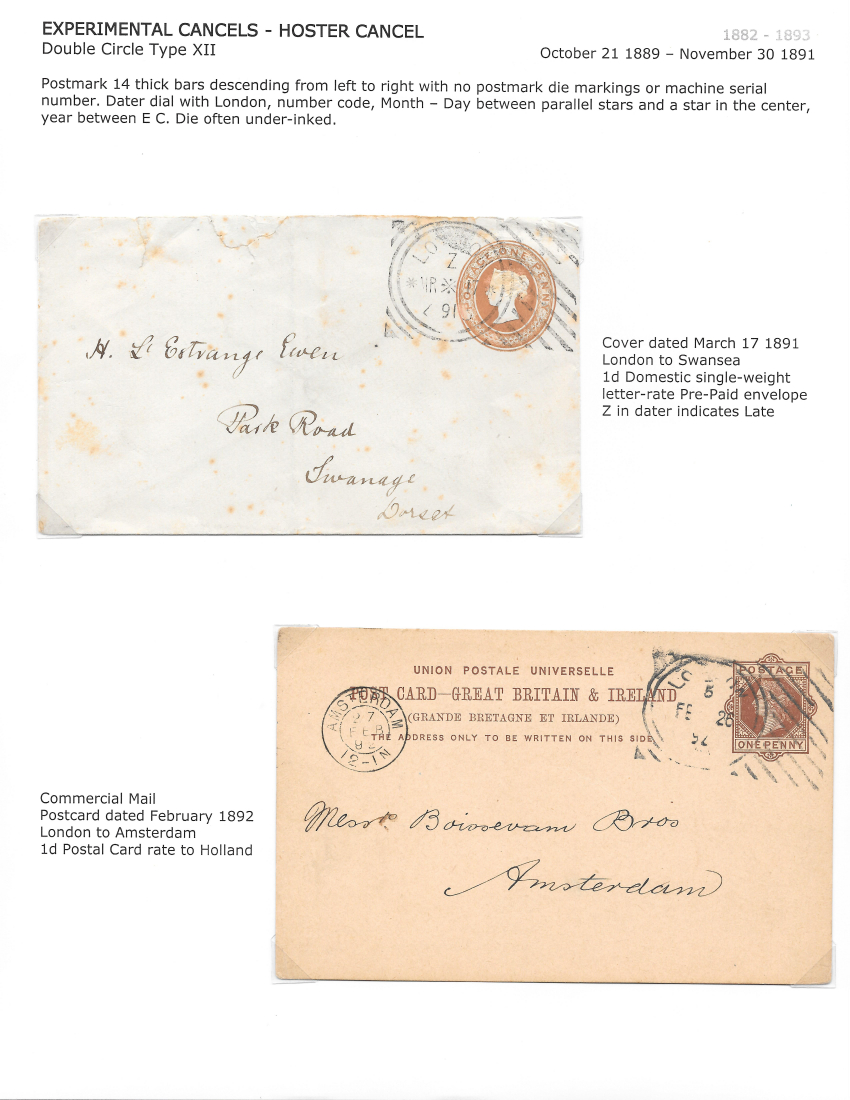 EXPERIMENTAL CANCELS - HOSTER CANCEL
1882 - 1893
Double Circle Type XII
October 21 1889 – November 30 1891
Postmark 14 thick bars descending from left to right with no postmark die markings or machine serial
number. Dater dial with London, number code, Month – Day between parallel stars and a star in the center,
year between E C. Die often under-inked.
LO
Z
MR
91
POSTAGE ONE PENNY
H. L'Estrange Ewen
Park Road
Swanage
Dorset
Cover dated March 17 1891
London to Swansea
1d Domestic single-weight
letter-rate Pre-Paid envelope
Z in dater indicates Late
UNION POSTALE UNIVERSELLE
POST CARD–GREAT BRITAIN & IRELAND
(GRANDE BRETAGNE ET IRLANDE)
THE ADDRESS ONLY TO BE WRITTEN ON THIS SIDE
AMSTERDAM
27
FEB
92
12-1N
5
FE 26
92
POSTAGE
ONE PENNY
Messrs Boissevam Bros
Amsterdam
Commercial Mail
Postcard dated February 1892
London to Amsterdam
1d Postal Card rate to Holland